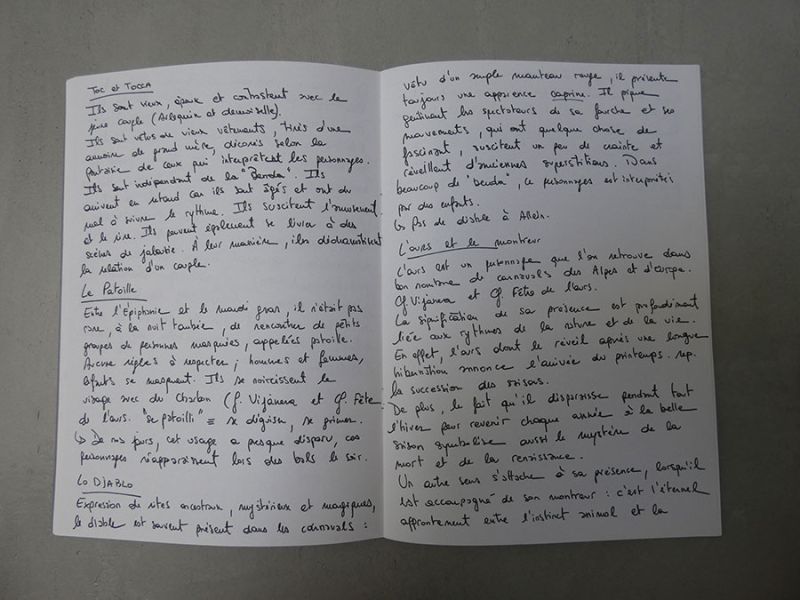 Toc et TOCCA
Ils sont vieux, épaux et contrastent avec le
jeune couple (Arlequin et demoiselle).
Ils sont vêtus de vieux vêtements, tirés d'une
armoire de grand mère, décorés selon la
fantaisie de ceux qui interprètent les personnages.
Ils sont indépendant de la "Benda". Ils
arrivent en retard car ils sont âgés et ont du
mal à suivre le rythme. Ils suscitent l'amusement
et le rire. Ils peuvent également se livrer à des
scènes de jalousie. À leur manière, ils dédramatisent
la relation d'un couple.
Le Patoille
Entre l'Épiphanie et le mardi gras, il n'était pas
rare, à la nuit tombée, de rencontrer de petits
groupes de personnes masquées, appelées patoille.
Aucune règles à respecter; hommes et femmes,
enfants se masquent. Ils se noircissent le
visage avec du charbon (cf. Vijanera et cf. Fête
de l'ours. "se patoilli" = se déguiser, se grimer.
↳ De nos jours, cet usage a presque disparu, ces
personnages réapparaissent lors des bals le soir.
Lo DIABLO
Expression de rites ancestraux, mystérieux et magiques,
le diable est souvent présent dans les carnavals :
vêtu d'un ample manteau rouge, il présente
toujours une apparence caprine. Il pique
gentiment les spectateurs de sa fourche et ses
mouvements, qui ont quelque chose de
fascinant, suscitent un peu de crainte et
réveillent d'anciennes superstitions. Dans
beaucoup de "benda", ce personnages est interprétés
par des enfants.
↳ Pas de diable à Allein.
L'ours et le montreur
L'ours est un personnage que l'on retrouve dans
bon nombre de carnavals des Alpes et d'Europe.
Cf. Vijanera et Cf. Fête de l'ours.
La signification de sa présence est profondément
liée aux rythmes de la nature et de la vie.
En effet, l'ours dont le réveil après une longue
hibernation annonce l'arrivée du printemps. rep.
la succession des saisons.
De plus, le fait qu'il disparaisse pendant tout
l'hiver pour revenir chaque année à la belle
saison symbolise aussi le mystère de la
mort et de la renaissance.
Un autre sens s'attache à sa présence, lorsqu'il
est accompagné de son montreur : c'est l'éternel
affrontement entre l'instinct animal et la